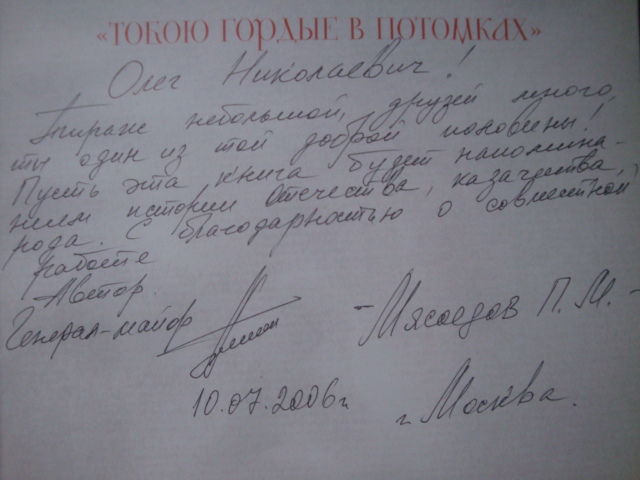 «ТОКОЮ ГОРДЫЕ В ПОТОМКАХ»
Олег Николаевич!
Тираж небольшой, друзей много,
ты один из той доброй половины!
Пусть эта книга будет напомина-
нием истории Отечества, казачества,
рода. С благодарностью о совместной
работе
Автор.
Генерал-майор
- Мясоедов П. М. -
10.07.2006 г
г. Москва.